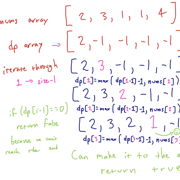 nums array [ 2, 3, 1, 1, 4 ]
dp array → [ 2, -1, -1, -1, -1 ]
iterate through [ 2, 3, -1, -1, -1
1 → size-1 dp[1]=max(dp[1-1]-1, nums[1])
[ 2, 3, 2, -1, -1
if (dp[i-1]==0) dp[2]=max(dp[2-1]-1, nums[2])
return false [ 2, 3, 2, 1, -1
because we can't dp[3]=max(dp[3-1]-1, nums[3])
reach index and
Can make it to the
return true